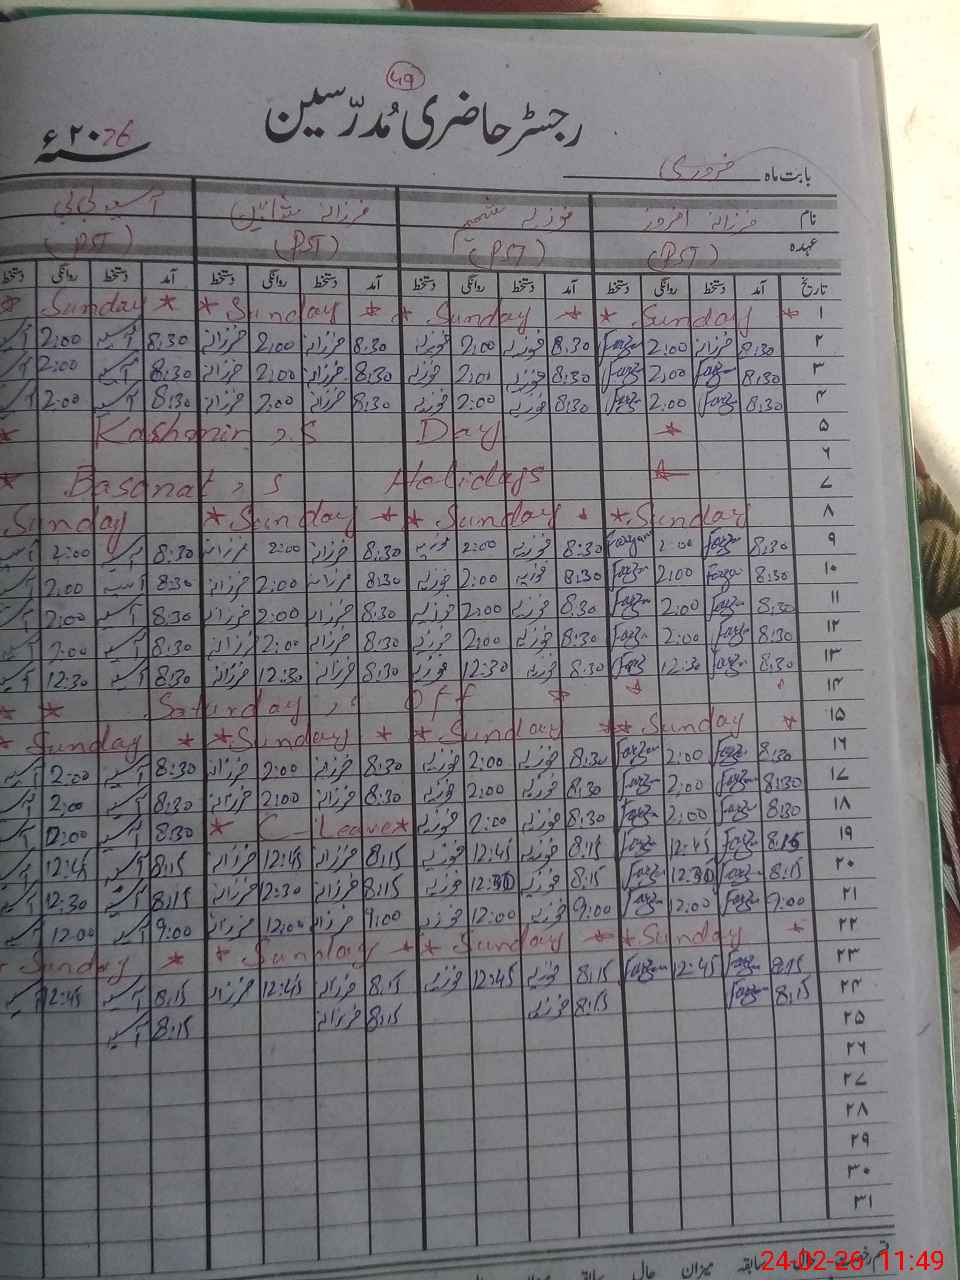 ٤٩
رجسٹر حاضری مُدرّسین
سنہ ۲۰26ء
بابت ماہ فروری
نام فرزانہ افروز فوزیہ شمیم فرزانہ شاہین آسیہ بی بی
عہدہ (PST) (PST) (PST) (PST)
تاریخ آمد دستخط روانگی دستخط آمد دستخط روانگی دستخط آمد دستخط روانگی دستخط آمد دستخط روانگی دستخط
۱ * Sunday * * Sunday * * Sunday * * Sunday *
۲ 8:30 فرزانہ 2:00 Farzn 8:30 فوزیہ 2:00 فوزیہ 8:30 فرزانہ 2:00 فرزانہ 8:30 آسیہ 2:00
۳ 8:30 Farzn 2:00 Farzn 8:30 فوزیہ 2:00 فوزیہ 8:30 فرزانہ 2:00 فرزانہ 8:30 آسیہ 2:00
۴ 8:30 Farzn 2:00 Farzn 8:30 فوزیہ 2:00 فوزیہ 8:30 فرزانہ 2:00 فرزانہ 8:30 آسیہ 2:00
۵ * Kashmir ,s Day *
۶
۷ * Basanat ,s Holidays *
۸ Sunday * Sunday * * Sunday * * Sunday
۹ 8:30 Farzn 2:00 Farzn 8:30 فوزیہ 2:00 فوزیہ 8:30 فرزانہ 2:00 فرزانہ 8:30 آسیہ 2:00
۱۰ 8:30 Farzn 2:00 Farzn 8:30 فوزیہ 2:00 فوزیہ 8:30 فرزانہ 2:00 فرزانہ 8:30 آسیہ 2:00
۱۱ 8:30 Farzn 2:00 Farzn 8:30 فوزیہ 2:00 فوزیہ 8:30 فرزانہ 2:00 فرزانہ 8:30 آسیہ 2:00
۱۲ 8:30 Farzn 2:00 Farzn 8:30 فوزیہ 2:00 فوزیہ 8:30 فرزانہ 2:00 فرزانہ 8:30 آسیہ 2:00
۱۳ 8:30 Farzn 12:30 Farzn 8:30 فوزیہ 12:30 فوزیہ 8:30 فرزانہ 12:30 فرزانہ 8:30 آسیہ 12:30
۱۴ * * Saturday ,s Off * *
۱۵ * Sunday * * Sunday * * Sunday * * Sunday *
۱۶ 8:30 Farzn 2:00 Farzn 8:30 فوزیہ 2:00 فوزیہ 8:30 فرزانہ 2:00 فرزانہ 8:30 آسیہ 2:00
۱۷ 8:30 Farzn 2:00 Farzn 8:30 فوزیہ 2:00 فوزیہ 8:30 فرزانہ 2:00 فرزانہ 8:30 آسیہ 2:00
۱۸ 8:30 Farzn 2:00 Farzn 8:30 فوزیہ 2:00 فوزیہ * C-Leave * 8:30 آسیہ 2:00
۱۹ 8:15 Farzn 12:45 Farzn 8:15 فوزیہ 12:45 فوزیہ 8:15 فرزانہ 12:45 فرزانہ 8:15 آسیہ 12:45
۲۰ 8:15 Farzn 12:30 Farzn 8:15 فوزیہ 12:30 فوزیہ 8:15 فرزانہ 12:30 فرزانہ 8:15 آسیہ 12:30
۲۱ 9:00 Farzn 12:00 Farzn 9:00 فوزیہ 12:00 فوزیہ 9:00 فرزانہ 12:00 فرزانہ 9:00 آسیہ 12:00
۲۲ Sunday * * Sunday * * Sunday * * Sunday *
۲۳ 8:15 Farzn 12:45 Farzn 8:15 فوزیہ 12:45 فوزیہ 8:15 فرزانہ 12:45 فرزانہ 8:15 آسیہ 12:45
۲۴ 8:15 Farzn 8:15 فوزیہ 8:15 فرزانہ 8:15 آسیہ
۲۵
۲۶
۲۷
۲۸
۲۹
۳۰
۳۱
قسم رخصت حال سابقہ میزان حال سابقہ
24-02-26 11:49